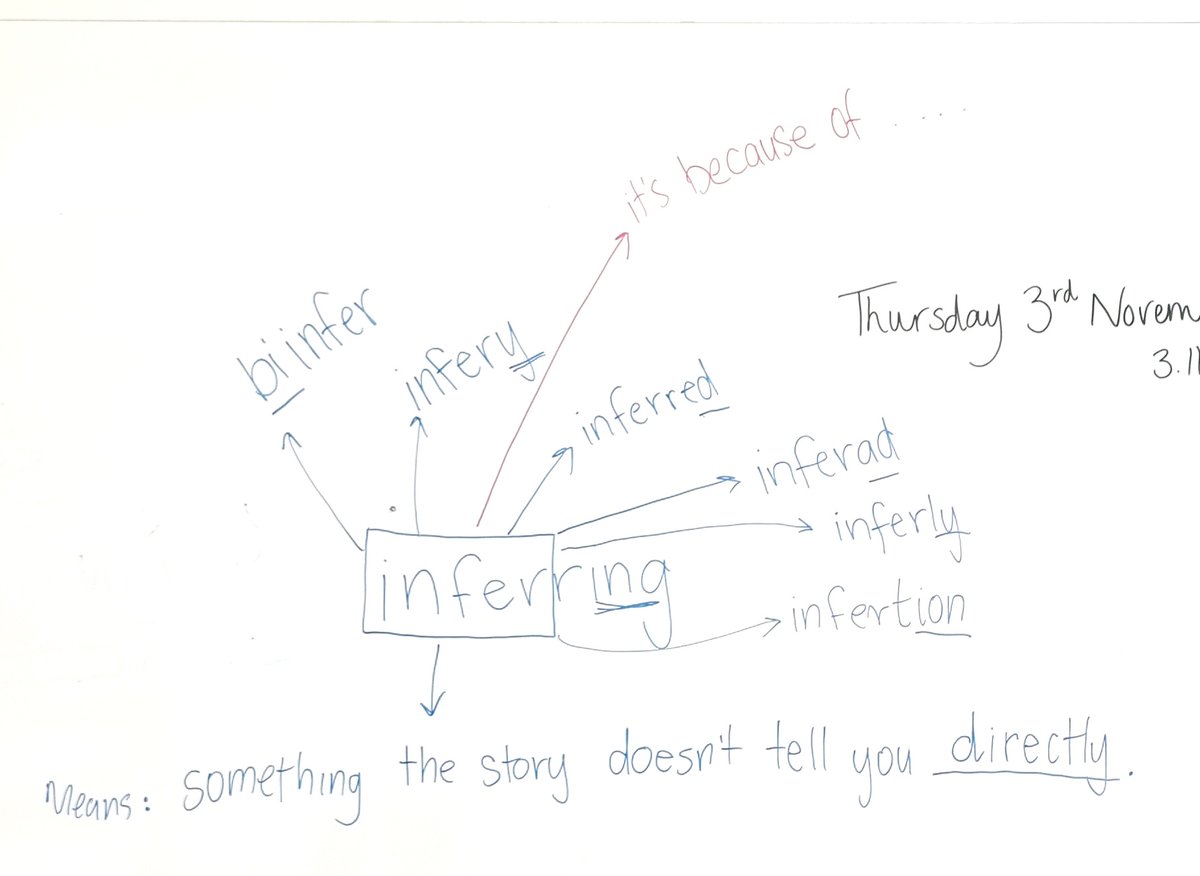 it's because of .....
Thursday 3rd Novem
3.11
biinfer
infery
inferred
inferad
inferly
inferring
infertion
Means: something the story doesn't tell you directly.